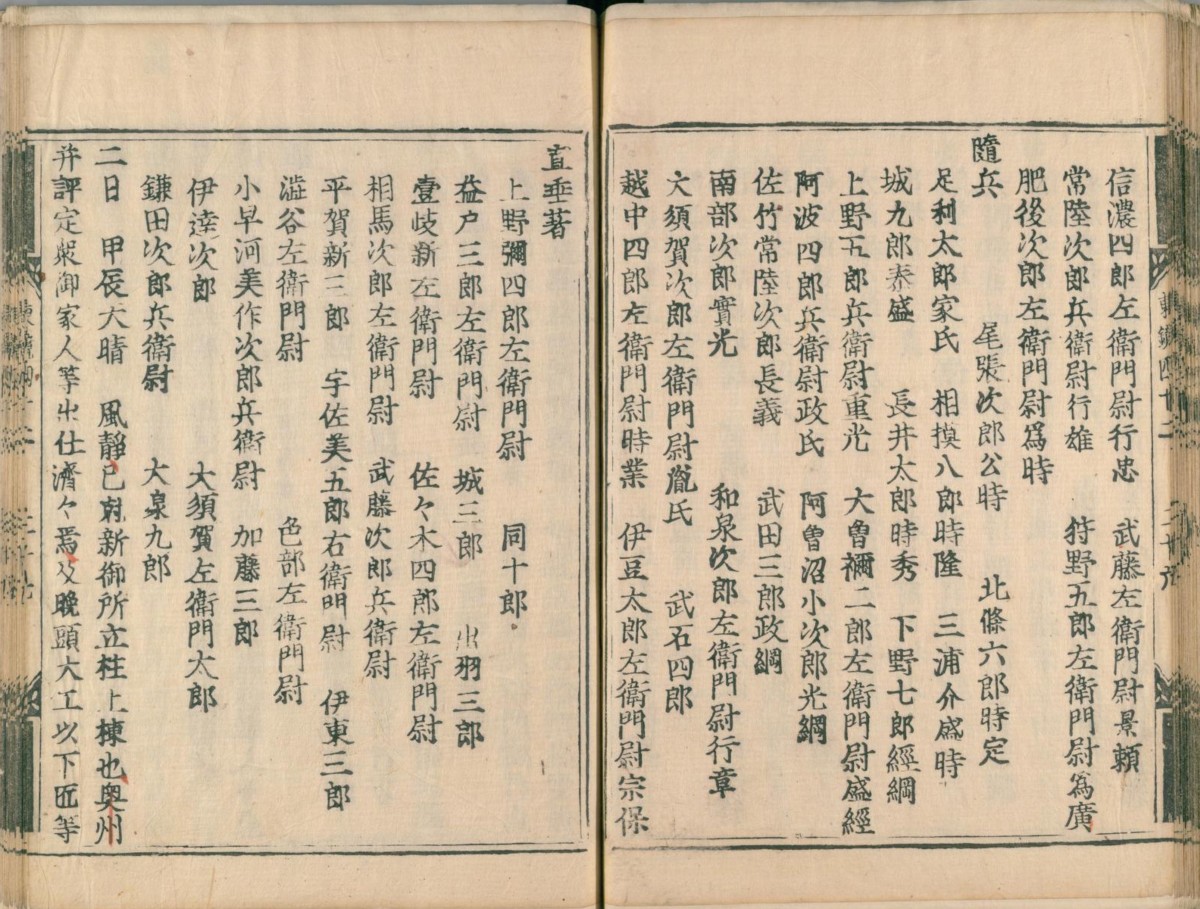 信濃四郎左衛門尉行忠　武藤左衛門尉景頼
常陸次郎兵衛尉行雄　狩野五郎左衛門尉爲廣
肥後次郎左衛門尉爲時
隨兵　尾張次郎公時　北條六郎時定
足利太郎家氏　相摸八郎時隆　三浦介盛時
城九郎泰盛　長井太郎時秀　下野七郎經綱
上野五郎兵衛尉重光　大曽禰二郎左衛門尉盛經
阿波四郎兵衛尉政氏　阿曽沼小次郎光綱
佐竹常陸次郎長義　武田三郎政綱
南部次郎實光　和泉次郎左衛門尉行章
大須賀次郎左衛門尉胤氏　武石四郎
越中四郎左衛門尉時業　伊豆太郎左衛門尉宗保
直垂著
上野彌四郎左衛門尉　同十郎
益戸三郎左衛門尉　城三郎　出羽三郎
壹岐新左衛門尉　佐々木四郎左衛門尉
相馬次郎左衛門尉　武藤次郎兵衛尉
平賀新三郎　宇佐美五郎右衛門尉　伊東三郎
澁谷左衛門尉　色部左衛門尉
小早河美作次郎兵衛尉　加藤三郎
伊達次郎　大須賀左衛門太郎
鎌田次郎兵衛尉　大泉九郎
二日　甲辰大晴　風靜已尅新御所立柱上棟也奥州
并評定衆御家人等出仕濟々焉及晩頭大工以下匠等